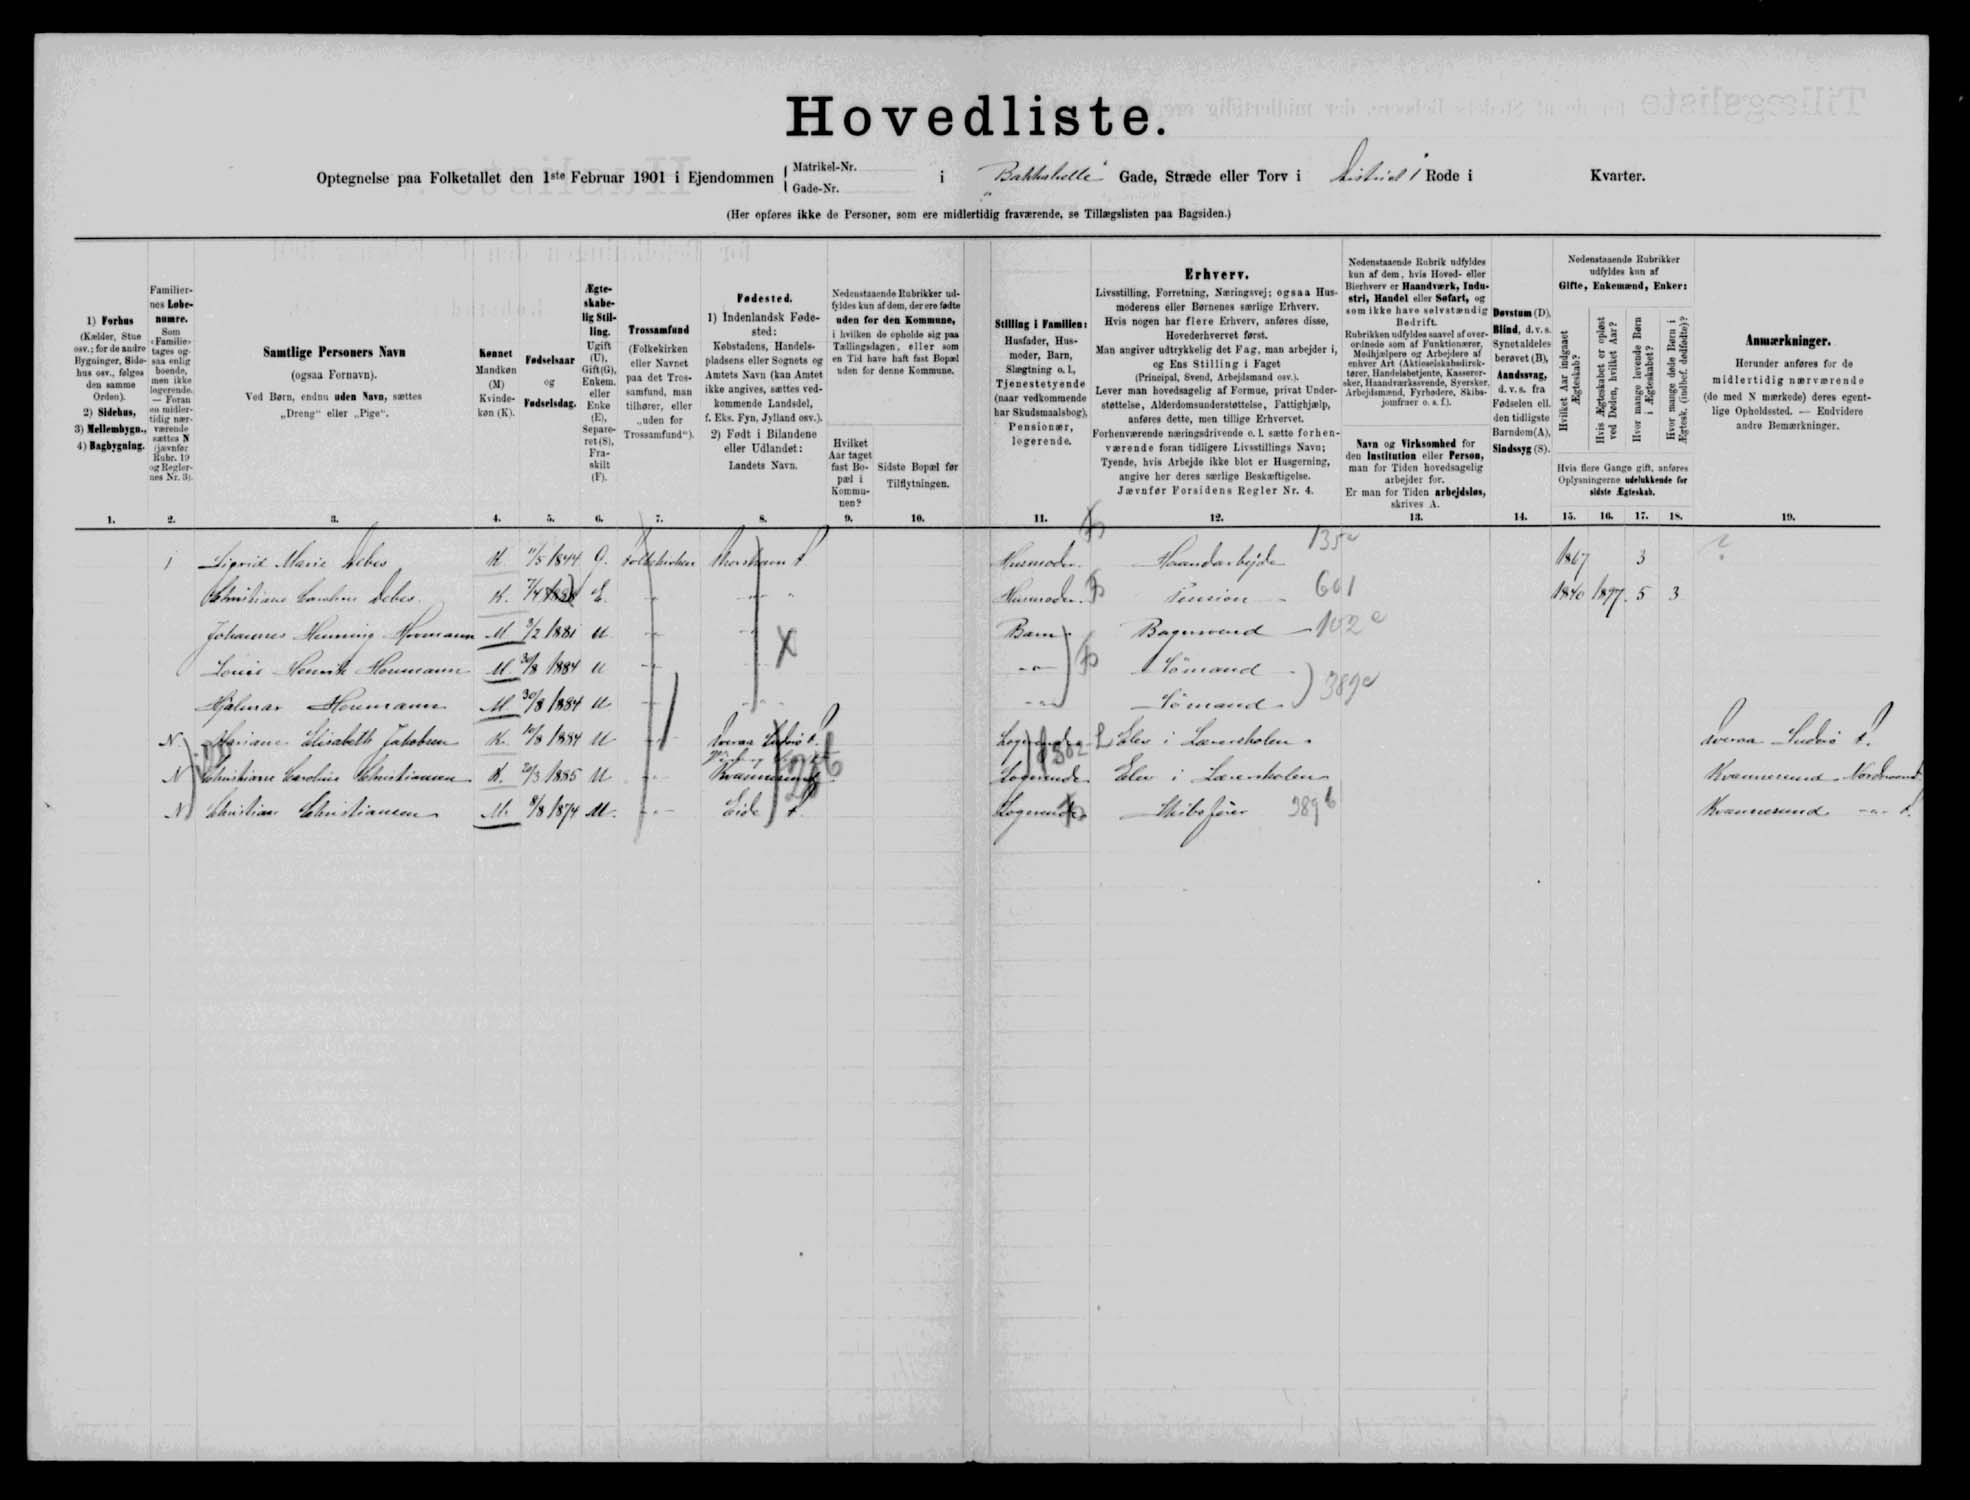 Hovedliste.
Optegnelse paa Folketallet den 1ste Februar 1901 i Ejendommen { Matrikel-Nr. Gade-Nr. i Bakkahella Gade, Stræde eller Torv i District 1 Rode i Kvarter.
(Her opføres ikke de Personer, som ere midlertidig fraværende, se Tillægslisten paa Bagsiden.)
1) Forhus (Kælder, Stue osv.; for de andre Bygninger, Sidehus osv., følges den samme Orden). 2) Sidehus, 3) Mellembygn., 4) Bagbygning.
Familiernes Løbenumre. Som «Familie» tages ogsaa enlig boende, men ikke logerende. — Foran en midlertidig nærværende sættes N (jævnfør Rubr. 19 og Reglernes Nr. 3).
Samtlige Personers Navn (ogsaa Fornavn). Ved Børn, endnu uden Navn, sættes „Dreng“ eller „Pige“.
Kønnet Mandkøn (M) Kvindekøn (K).
Fødselsaar og Fødselsdag.
Ægteskabelig Stilling. Ugift (U), Gift (G), Enkem. eller Enke (E), Separeret (S), Fraskilt (F).
Trossamfund (Folkekirken eller Navnet paa det Trossamfund, man tilhører, eller „uden for Trossamfund“).
Fødested. 1) Indenlandsk Fødested: Købstadens, Handelspladsens eller Sognets og Amtets Navn (kan Amtet ikke angives, sættes vedkommende Landsdel, f. Eks. Fyn, Jylland osv.). 2) Født i Bilandene eller Udlandet: Landets Navn.
Nedenstaaende Rubrikker udfyldes kun af dem, der ere fødte uden for den Kommune, i hvilken de opholde sig paa Tællingsdagen, eller som en Tid have haft fast Bopæl uden for denne Kommune.
Hvilket Aar taget fast Bopæl i Kommunen?
Sidste Bopæl før Tilflytningen.
Stilling i Familien: Husfader, Husmoder, Barn, Slægtning o. l., Tjenestetyende (naar vedkommende har Skudsmaalsbog), Pensionær, logerende.
Erhverv.
Livsstilling, Forretning, Næringsvej; ogsaa Husmoderens eller Børnenes særlige Erhverv.
Hvis nogen har flere Erhverv, anføres disse, Hovederhvervet først.
Man angiver udtrykkelig det Fag, man arbejder i, og Ens Stilling i Faget (Principal, Svend, Arbejdsmand osv.).
Lever man hovedsagelig af Formue, privat Understøttelse, Alderdomsunderstøttelse, Fattighjælp, anføres dette, men tillige Erhvervet.
Forhenværende næringsdrivende o. l. sætte forhenværende foran tidligere Livsstillings Navn;
Tyende, hvis Arbejde ikke blot er Husgerning, angive her deres særlige Beskæftigelse.
Jævnfør Forsidens Regler Nr. 4.
Nedenstaaende Rubrik udfyldes kun af dem, hvis Hoved- eller Bierhverv er Haandværk, Industri, Handel eller Søfart, og som ikke have selvstændig Bedrift.
Rubrikken udfyldes saavel af overordnede som af Funktionærer, Medhjælpere og Arbejdere af enhver Art (Aktieselskabsdirektører, Handelsbetjente, Kasserersker, Haandværkssvende, Syersker, Arbejdsmænd, Fyrbødere, Skibsjomfruer o. s. f.).
Navn og Virksomhed for den Institution eller Person, man for Tiden hovedsagelig arbejder for.
Er man for Tiden arbejdsløs, skrives A.
Døvstum (D), Blind, d. v. s. Synet aldeles berøvet (B), Aandssvag, d. v. s. fra Fødselen ell. den tidligste Barndom (A), Sindssyg (S).
Nedenstaaende Rubrikker udfyldes kun af Gifte, Enkemænd, Enker:
Hvilket Aar indgaaet Ægteskab?
Hvis Ægteskabet er opløst ved Døden, hvilket Aar?
Hvor mange levende Børn i Ægteskabet?
Hvor mange døde Børn i Ægtesk. (indbef. dødfødte)?
Hvis flere Gange gift, anføres Oplysningerne udelukkende for sidste Ægteskab.
Anmærkninger. Herunder anføres for de midlertidig nærværende (de med N mærkede) deres egentlige Opholdssted. — Endvidere andre Bemærkninger.
1. 2. 3. 4. 5. 6. 7. 8. 9. 10. 11. 12. 13. 14. 15. 16. 17. 18. 19.
1 Sigrid Marie Debes K 11/5 1844 G. Folkekirken Thorshavn F. Husmoder Haandarbejde 135a 1867 3 ?
Christiane Caroline Debes K. 7/4 E. -"- -"- Husmoder Pension 661 1840 1897 5 3
Johannes Henning Hermann M 3/2 1881 U -"- -"- Barn Bagersvend 102c
Louis Henrik Hermann M. 30/8 1884 U -"- -"- Sömand
Hjalmar Hermann M 30/8 1884 U -"- -"- Sömand 389c
N Mariane Elisabeth Jakobsen K. 10/8 1884 U -"- Qveraa Suderö F. Logerende Elev i Lærerskolen Qveraa Suderö F.
N Christiane Caroline Christiansen K. 20/3 1885 U -"- Kvannesund Logerende Elev i Lærerskolen Kvannesund Norderoerne
N Christian Christiansen M. 8/8 1874 U. -"- Eide F. Logerende Skibsfører 389b Kvannesund -"- F.